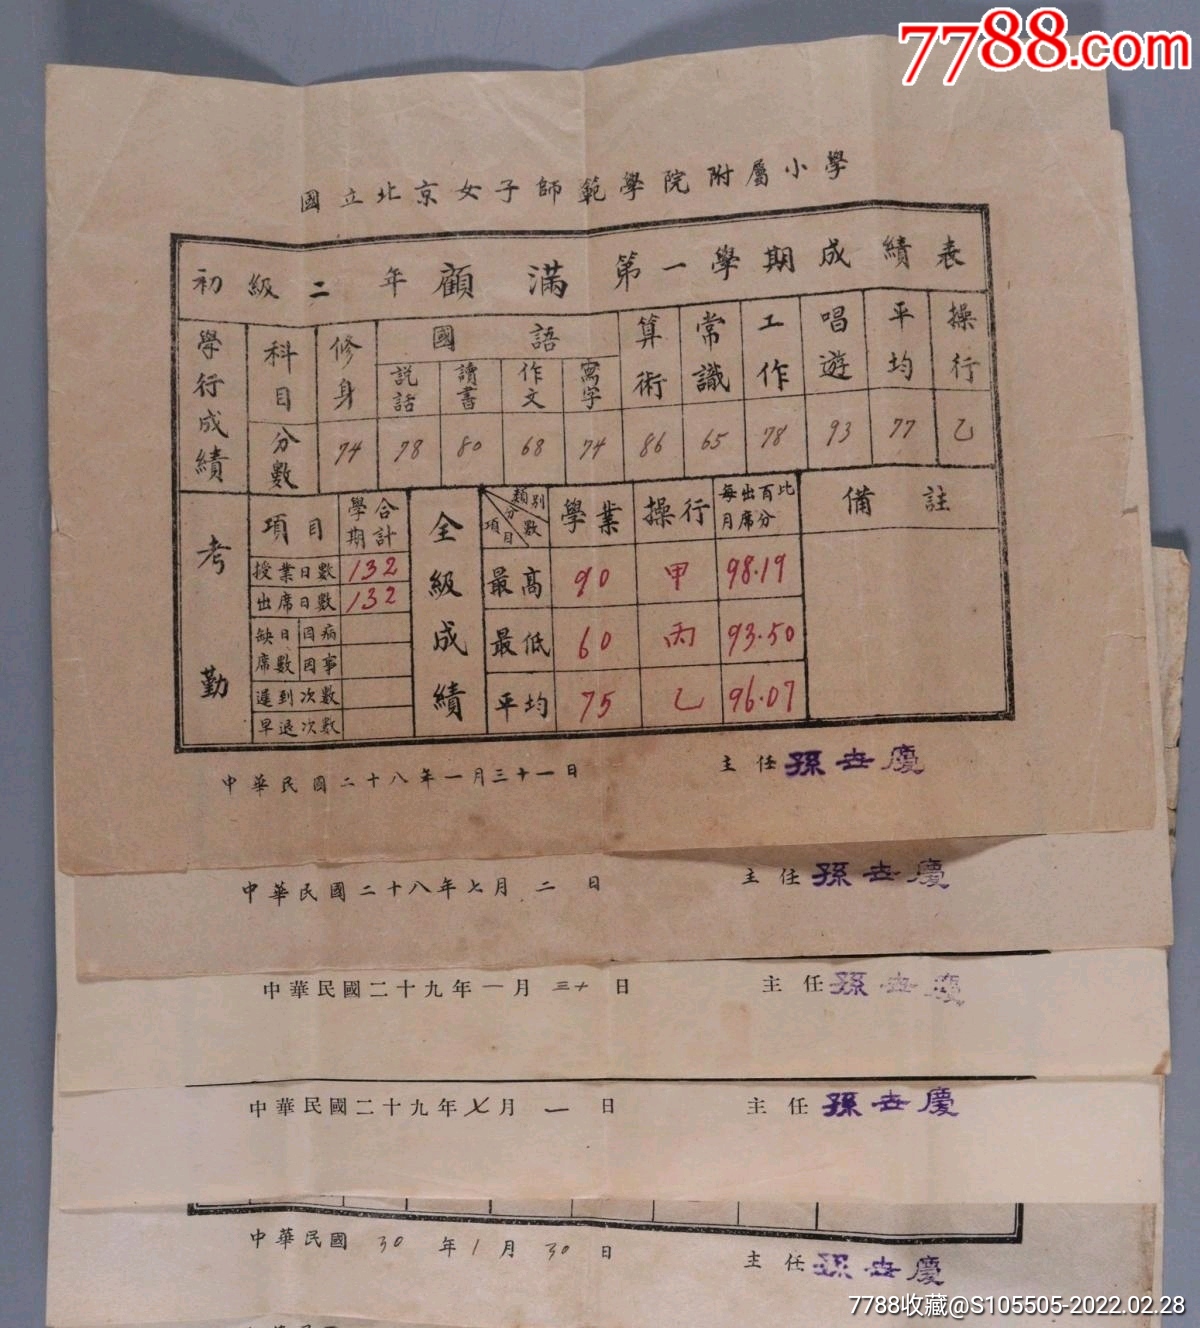 7788.com
國立北京女子師範學院附屬小學
初級二年 顧滿 第一學期成績表
學行成績 科目 修身 國語 算術 常識 工作 唱遊 平均 操行
説話 讀書 作文 寫字
分數 74 78 80 68 74 86 65 78 93 77 乙
考勤 項目 學期合計 全級成績 類別 分數 項目 學業 操行 每月出席百分比 備註
授業日數 132
出席日數 132
缺席日數 因病
因事
遲到次數
早退次數
最高 90 甲 98.19
最低 60 丙 93.50
平均 75 乙 96.07
中華民國二十八年一月三十一日 主任 孫世慶
中華民國二十八年七月二日 主任 孫世慶
中華民國二十九年一月三十日 主任 孫世慶
中華民國二十九年七月一日 主任 孫世慶
中華民國30年1月30日 主任 孫世慶
7788收藏@S105505-2022.02.28